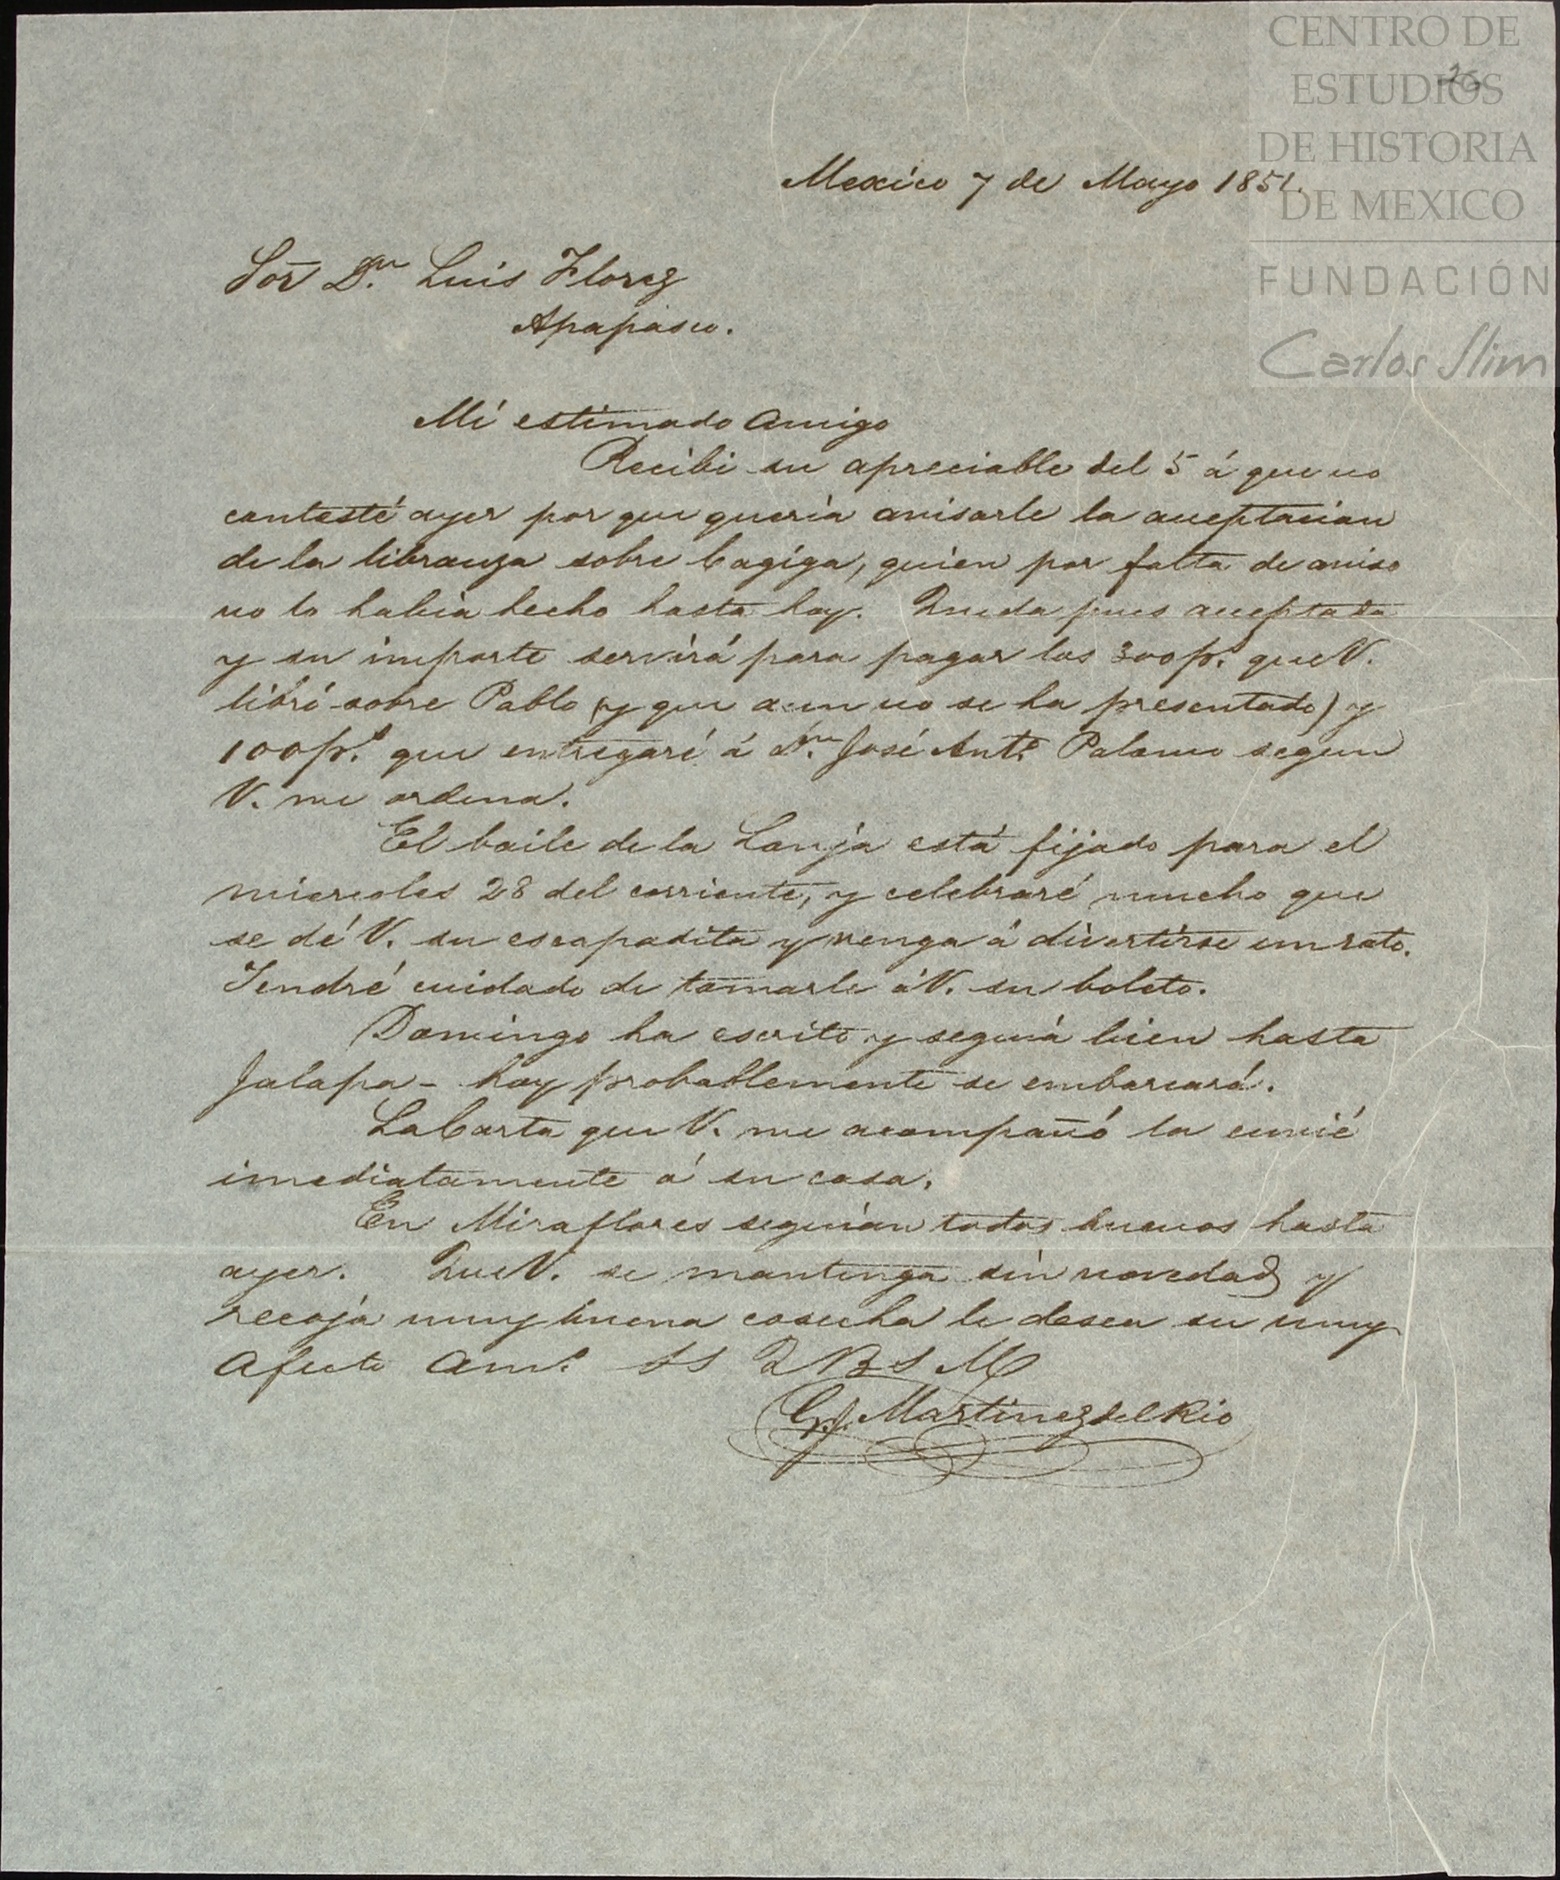 CENTRO DE
ESTUDIOS
DE HISTORIA
DE MEXICO
FUNDACIÓN
Carlos Slim
26
Mexico 7 de Mayo 1851.
Sor Dn. Luis Florez
Apapasco.
Mi estimado amigo
Recibi su apreciable del 5 á que no
contesté ayer por que queria avisarle la aceptacion
de la libranza sobre Cagiga, quien por falta de aviso
no lo habia hecho hasta hoy. Queda pues aceptada
y su importe servirá para pagar los 300 ps. que V.
libró sobre Pablo (y que aun no se ha presentado) y
100 ps. que entregaré á Dn. José Anto. Palomo segun
V. me ordena.
El baile de la Lonja está fijado para el
miercoles 28 del corriente, y celebraré mucho que
se dé V. su escapadita y venga á divertirse un rato.
Tendré cuidado de tomarle á V. su boleto.
Domingo ha escrito y seguia bien hasta
Jalapa - hoy probablemente se embarcará.
La Carta que V. me acompañó la envié
imediatamente á su casa.
En Miraflores seguian todos buenos hasta
ayer. Que V. se mantenga sin novedad y
recoja muy buena cosecha le desea su muy
Afecto Amo. SS Q B S M
G. J. Martinez del Rio